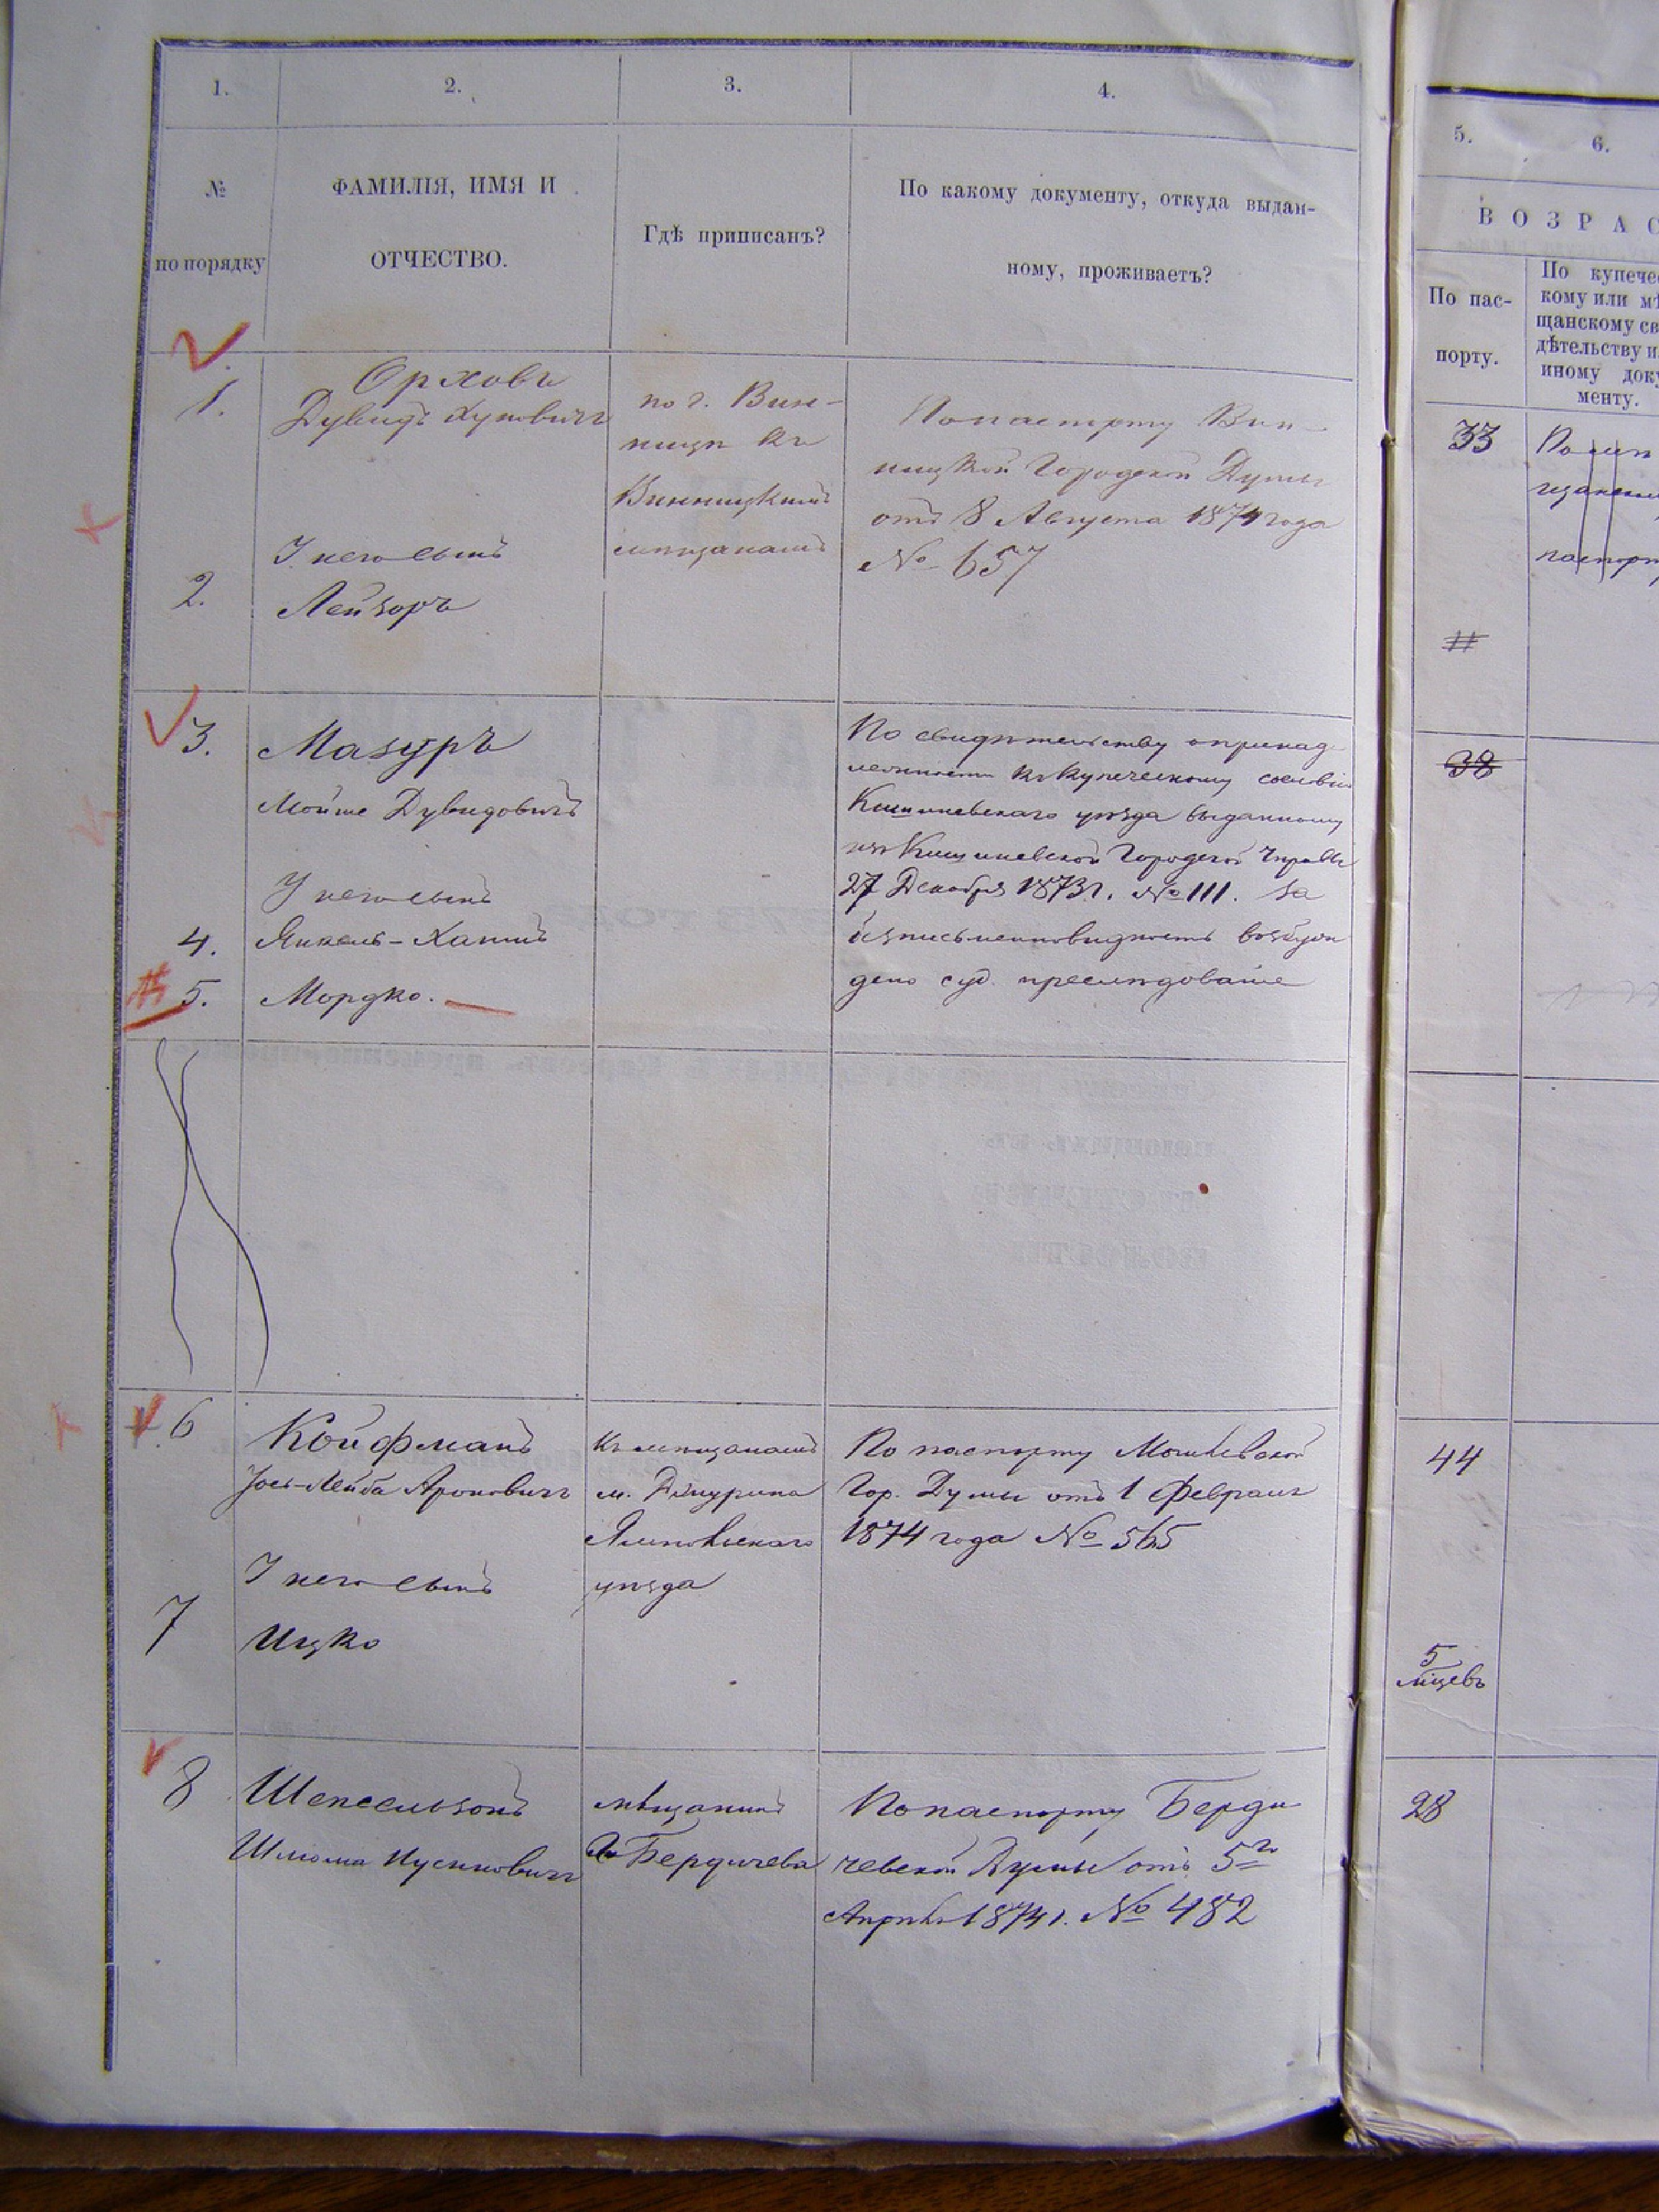 1.
2.
3.
4.
№
по порядку
ФАМИЛІЯ, ИМЯ И
ОТЧЕСТВО.
Гдѣ приписанъ?
По какому документу, откуда выдан-
ному, проживаетъ?
1.
Орховъ
Дувидъ
по г. Вин-
ницѣ къ
Винницкимъ
мѣщанамъ
По паспорту Вин-
ницкой Городской Думы
отъ 8 Августа 1874 года
№ 657
У него сынъ
2.
Лейзоръ
3.
Мазуръ
Мойше Дувидовичъ
У него сынъ
4.
Янкель-Хаимъ
5.
Мордко.
По свидѣтельству о принад
лежности къ купеческому сословію
Кишиневскаго уѣзда выданному
изъ Кишиневской Городской Управы
27 Декабря 1873 г. № 111. За
возбуж
дено суд. преслѣдованіе
6
Койфманъ
Іось-Лейба Ароновичъ
У него сынъ
7
Ицко
Къ мѣщанамъ
м.
Ямпольскаго
уѣзда
По паспорту
Гор. Думы отъ 1 Февраля
1874 года № 565
8
Шепсельзонъ
Шлиома
мѣщанинъ
Бердичева
По паспорту Берди
чевской Думы отъ 5го
Апрѣля 1874 г. № 482
5.
6.
ВОЗРАС
По пас-
порту.
По купечес
кому или мѣ
щанскому св
дѣтельству и
иному доку
менту.
33
11
38
44
5
мѣсяцевъ
28